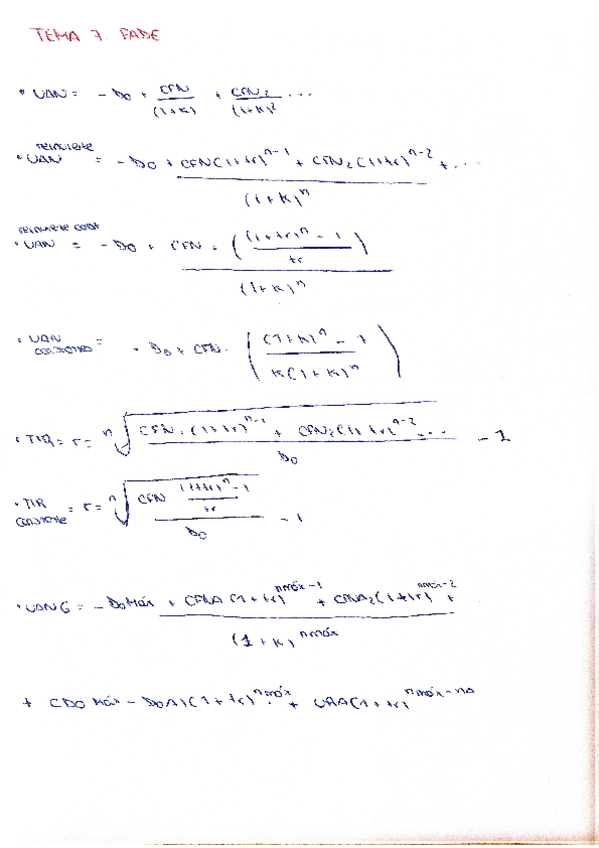 TEMA 7. FADE
• VAN = - D0 + CFN/(1+K) + CFN2/(1+K)² ...
reinvierte
• VAN = - D0 + CFN(1+tr)^n-1 + CFN2(1+tr)^n-2 + ... / (1+K)^n
reinvierte const
• VAN = - D0 + CFN · ( (1+tr)^n - 1 / tr ) / (1+K)^n
• VAN constantes = - D0 + CFN · ( (1+K)^n - 1 / K(1+K)^n )
• TIR = r = n√ CFN · (1+tr)^n-1 + CFN2(1+tr)^n-2 ... / D0 - 1
• TIR constante = r = n√ CFN (1+tr)^n - 1 / tr / D0 - 1
• VANG = - D0 Máx + CFNA (1+tr)^nmáx-1 + CFNA2(1+tr)^nmáx-2 + / (1+K)^nmáx
+ (D0 Máx - D0A)(1+tr)^nmáx + VRA(1+tr)^nmáx-nA